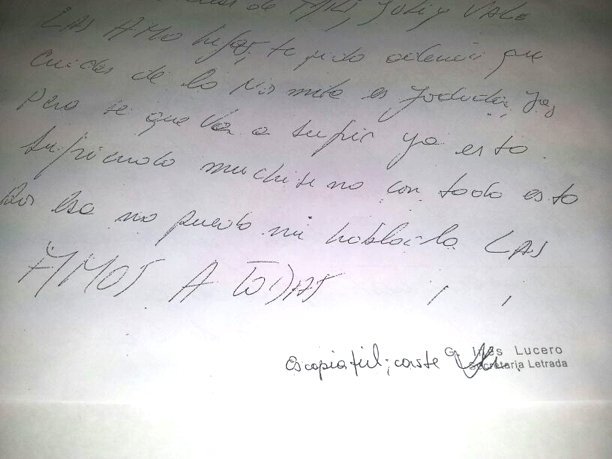 de TAHI, JULI y VALE
LAS AMO hijas, te pido además que
cuides de la Noni meta es jodida, jaj
Pero se que va a sufrir ya esta
sufriendo muchisimo con todo esto
Por eso no puedo ni hablarla LAS
AMOS A TODAS , ,
es copia fiel; conste G. Inés Lucero
Secretaria Letrada